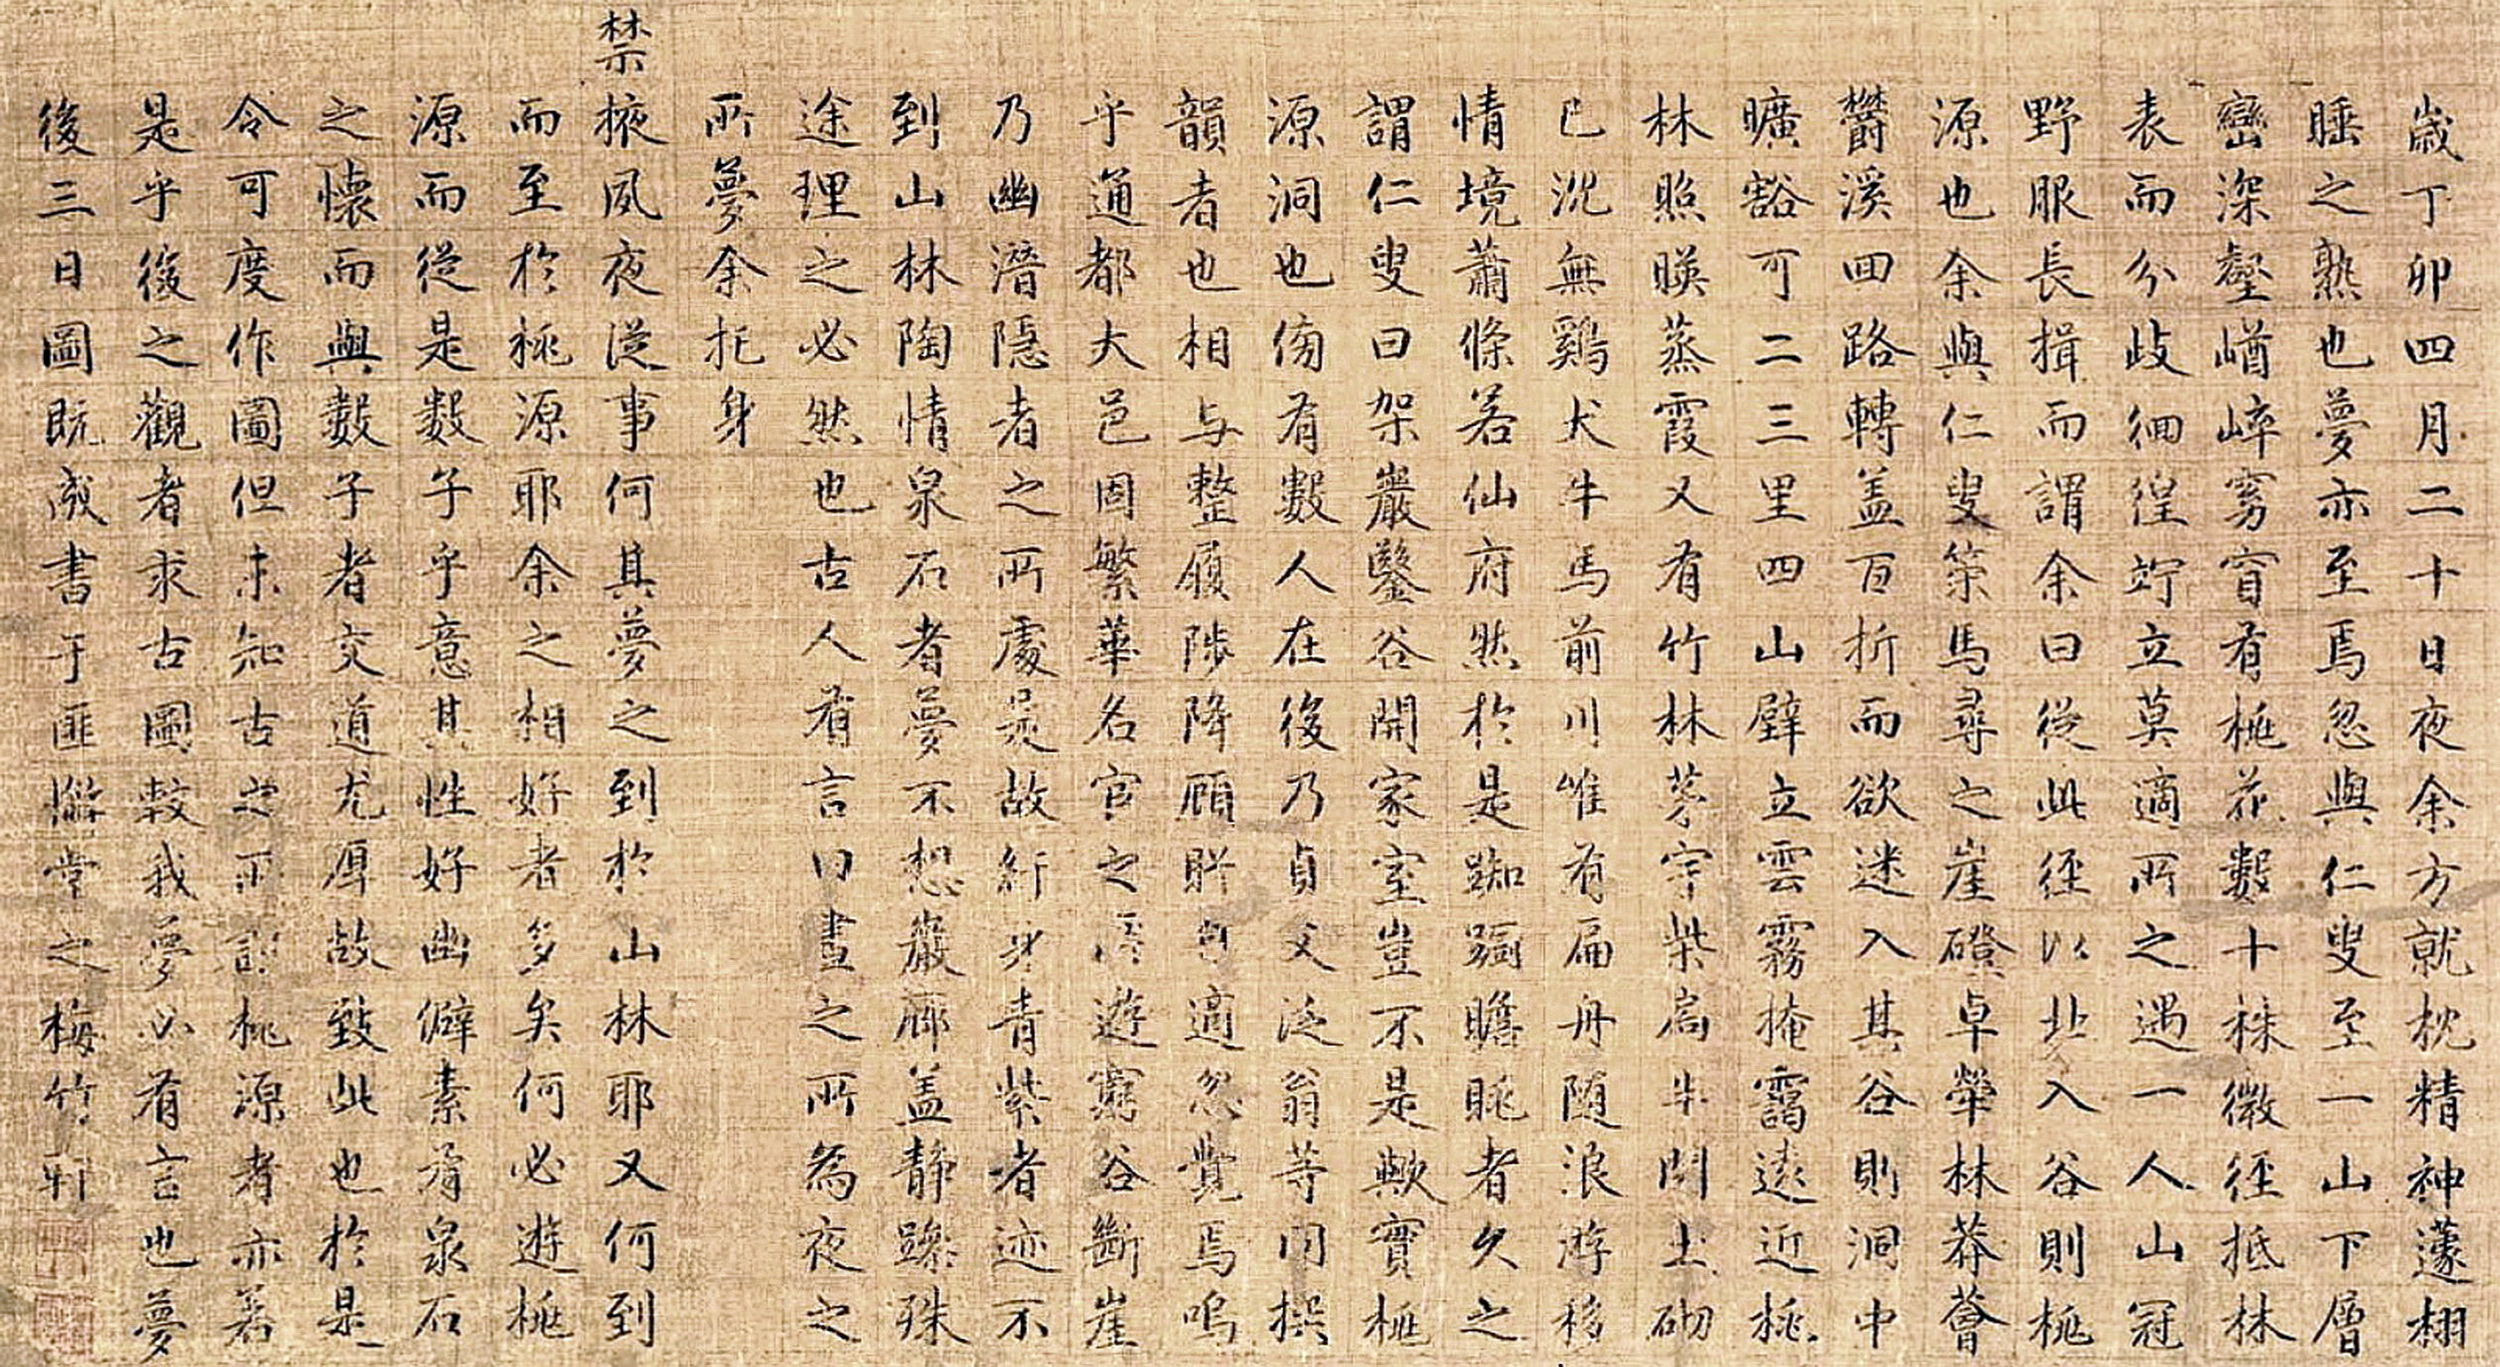 歲丁卯四月二十日夜余方就枕精神蘧栩
睡之熟也夢亦至焉忽與仁叟至一山下層
巒深壑崷崒窈窅有桃花數十株微徑抵林
表而分歧徊徨竚立莫適所之遇一人山冠
野服長揖而謂余曰從此徑以北入谷則桃
源也余與仁叟策馬尋之崖磴卓犖林莽薈
欝溪回路轉盖百折而欲迷入其谷則洞中
曠豁可二三里四山壁立雲霧掩靄遠近桃
林照暎蒸霞又有竹林茅宇柴扃半開土砌
已沈無鷄犬牛馬前川唯有扁舟随浪游移
情境蕭條若仙府然於是踟躕瞻眺者久之
謂仁叟曰架巖鑿谷開家室豈不是歟實桃
源洞也傍有數人在後乃貞父泛翁等同撰
韻者也相与整履陟降顧眄自適忽覺焉嗚
乎通都大邑固繁華名宦之所遊窮谷斷崖
乃幽潛隠者之所處是故紆身青紫者迹不
到山林陶情泉石者夢不想巖廊盖静躁殊
途理之必然也古人有言曰晝之所為夜之
所夢余托身
禁掖夙夜從事何其夢之到於山林耶又何到
而至於桃源耶余之相好者多矣何必遊桃
源而從是數子乎意其性好幽僻素有泉石
之懷而與數子者交道尤厚故致此也於是
令可度作圖但未知古之所謂桃源者亦若
是乎後之觀者求古圖較我夢必有言也夢
後三日圖既成書于匪懈堂之梅竹軒